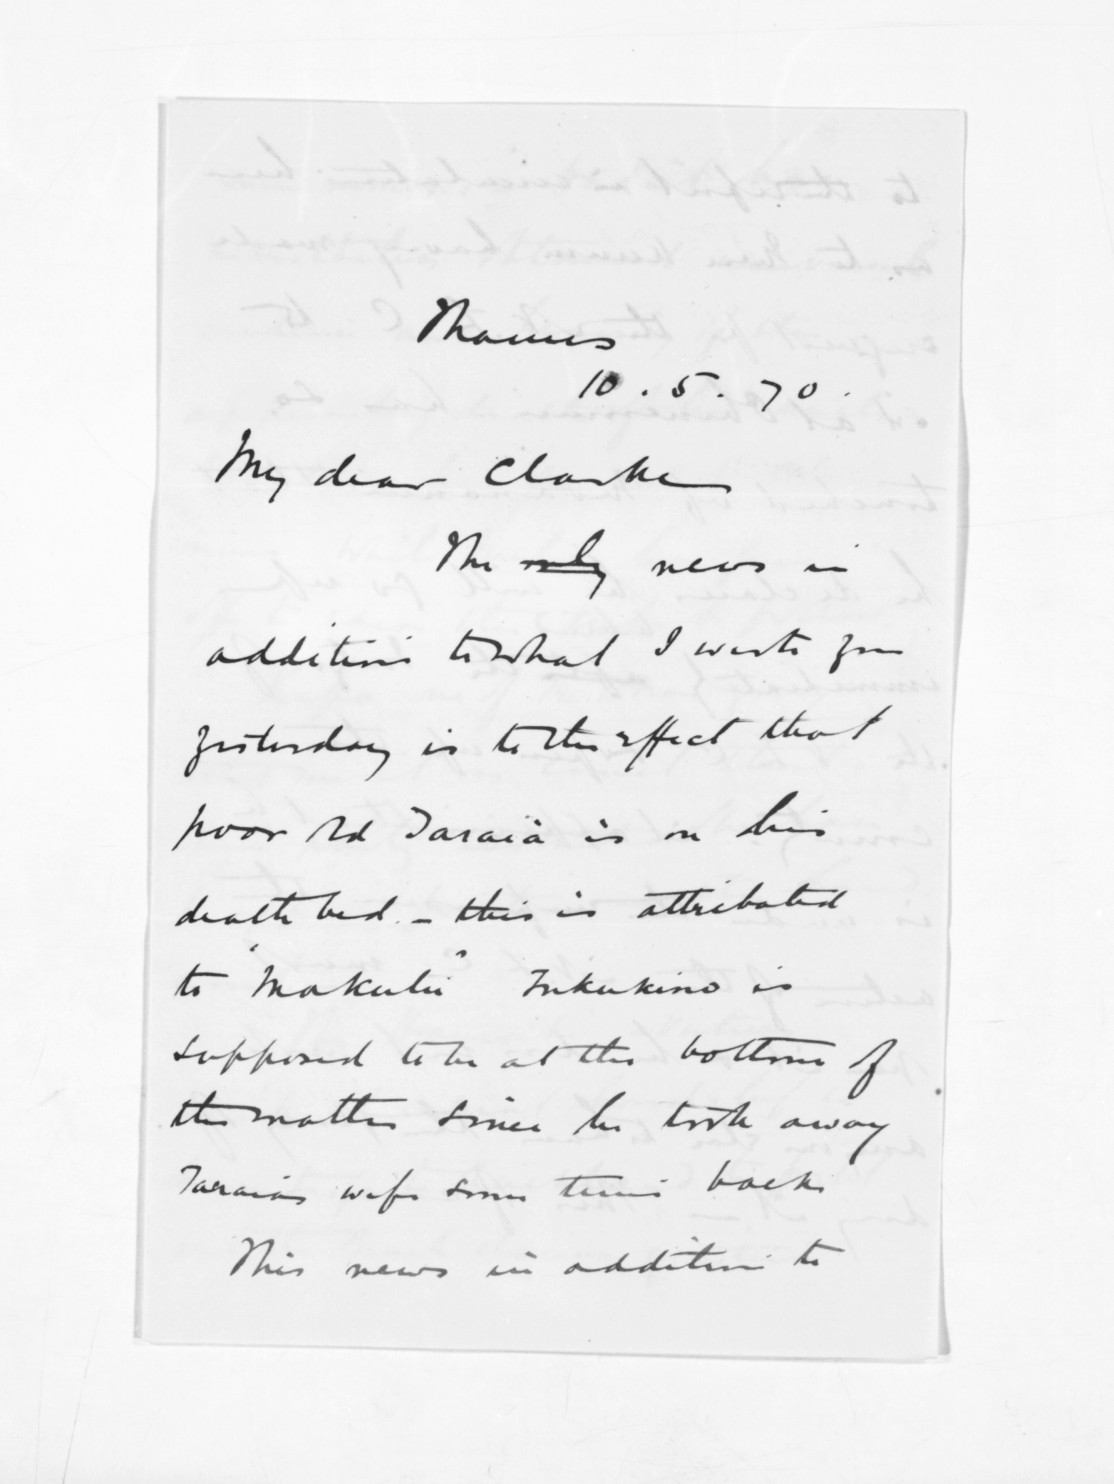 Thames
10.5.70.
My dear Clarke
The only news in
addition to what I wrote you
yesterday is to the effect that
poor old Taraia is on his
death bed. - this is attributed
to "Makutu" Tukukino is
supposed to be at the bottom of
the matter since he took away
Taraias wife some time back
This news in addition to